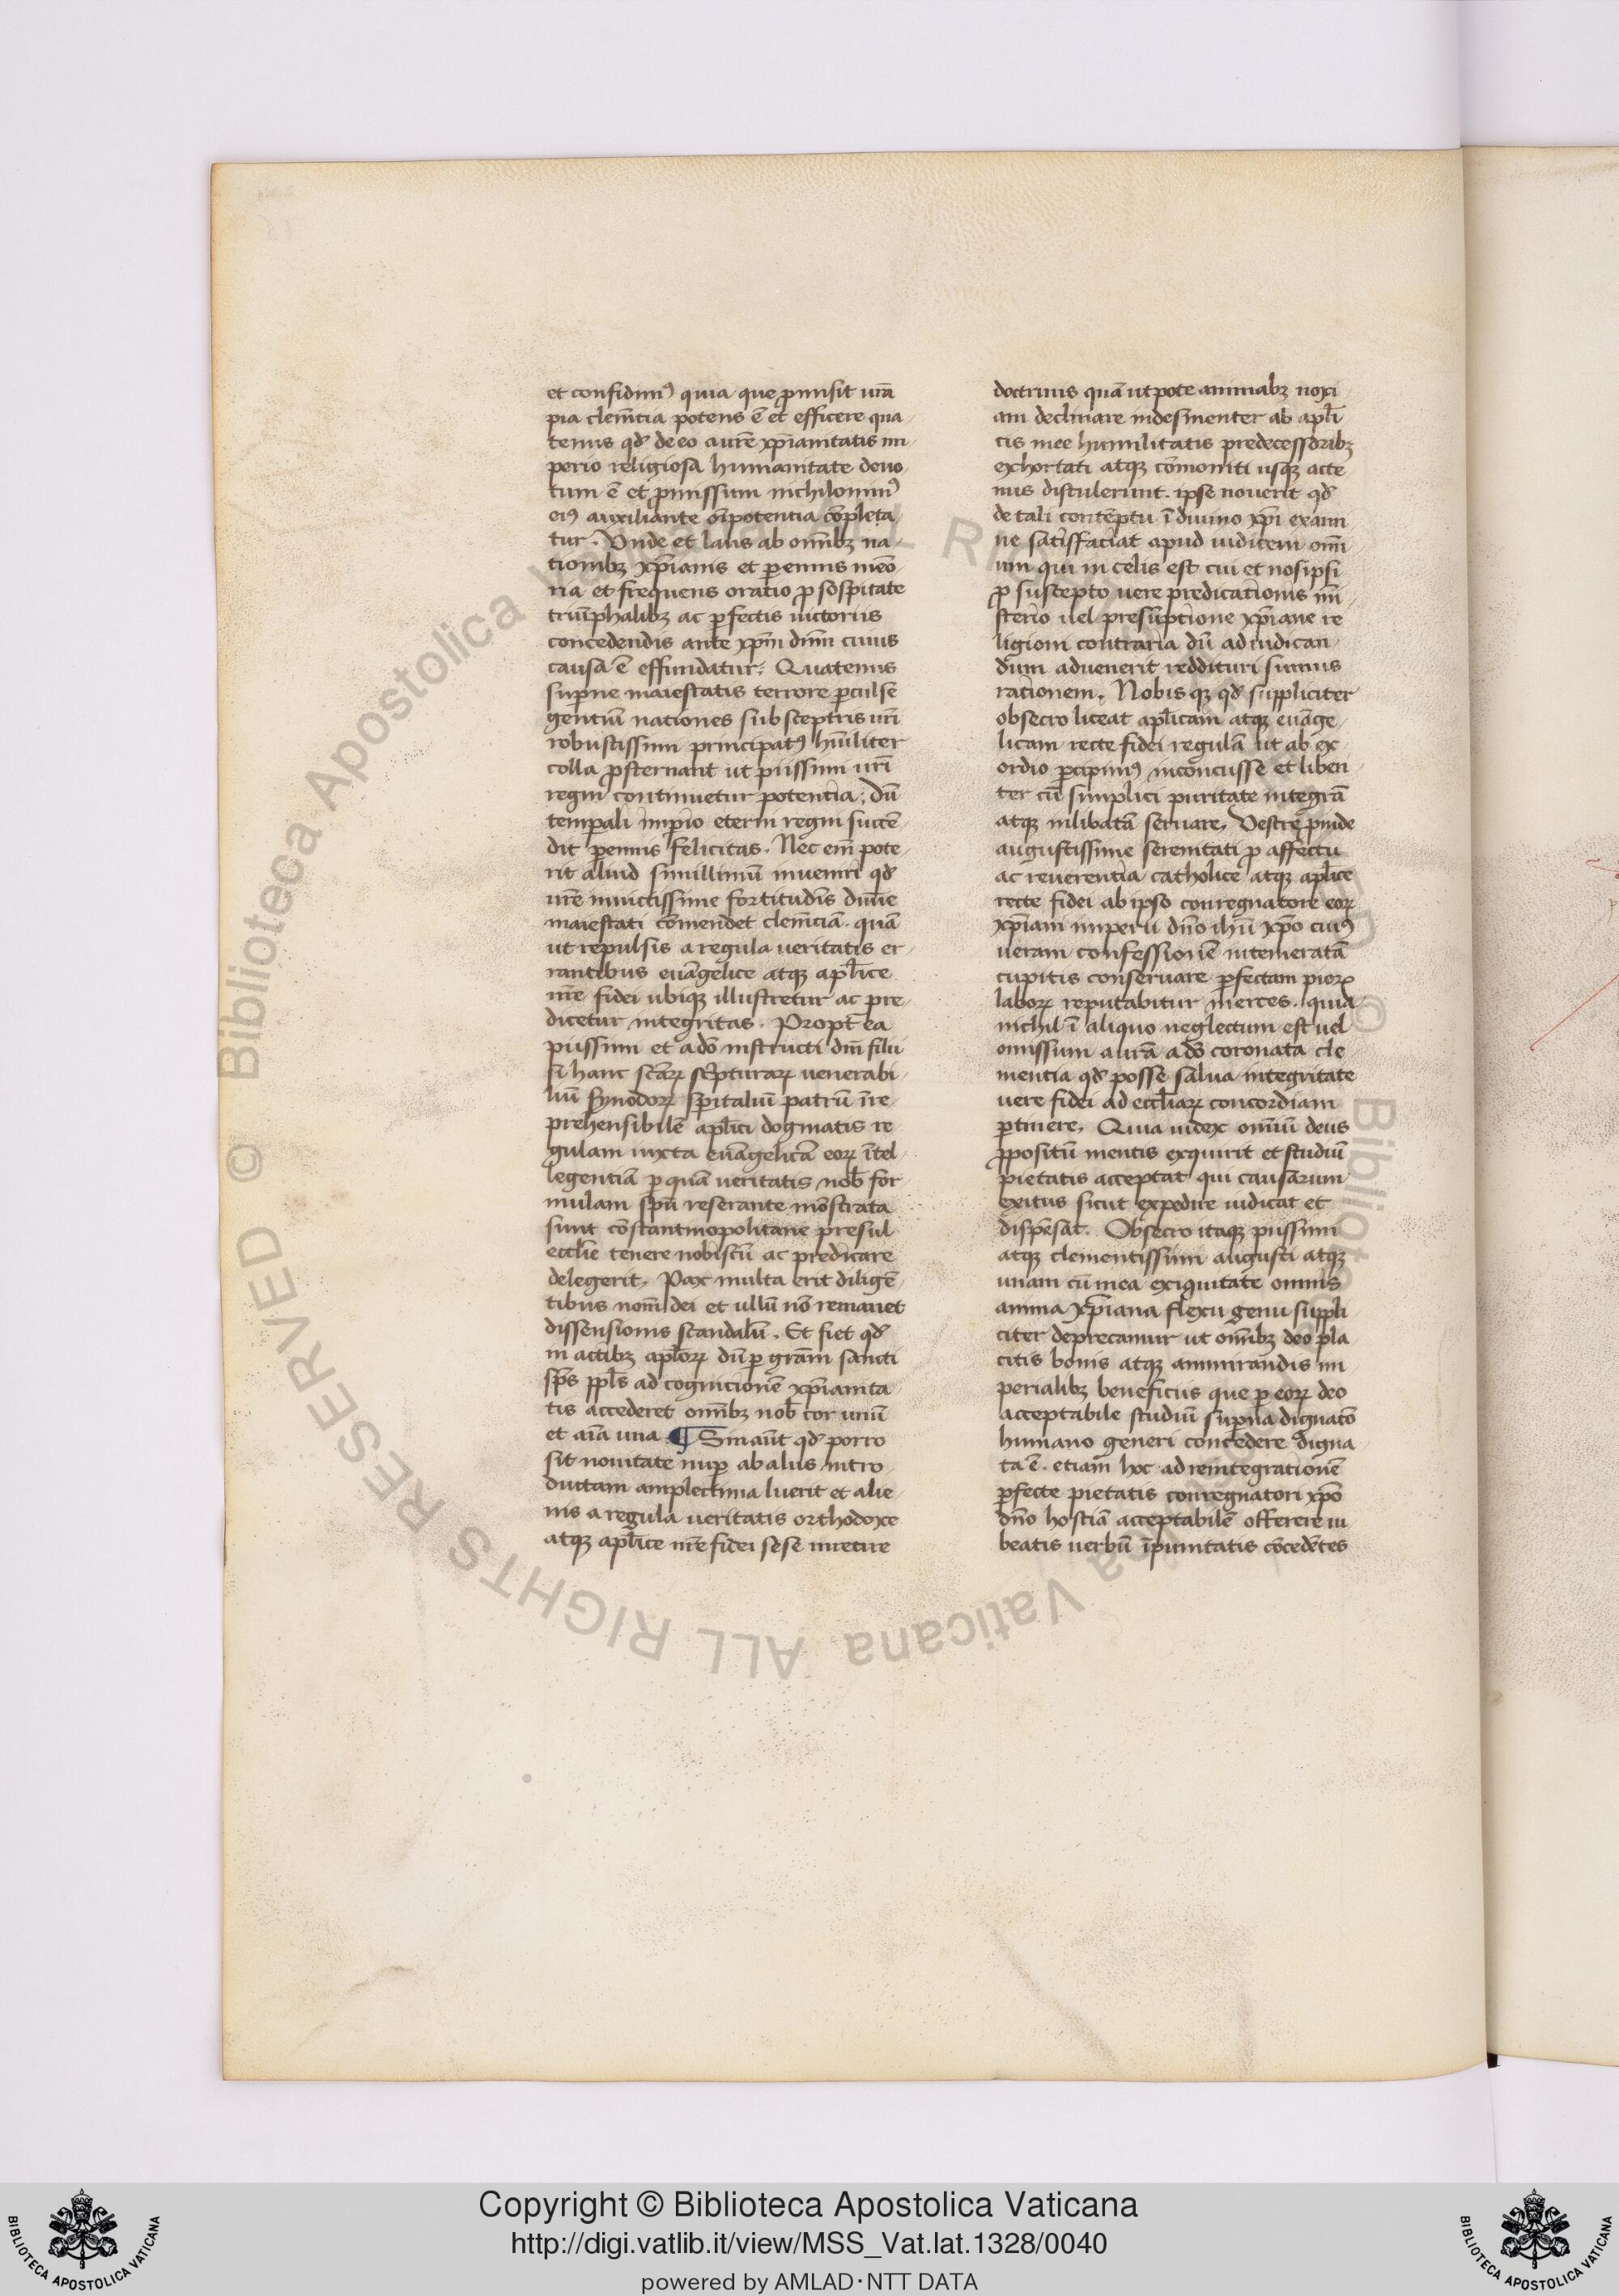 et confidimꝰ quia que ꝓmisit vr̄a
pia clem̄tia potens ē et efficere qua
tenus qd̓ de eo aurē xp̄ianitatis im
perio religiosa humanitate deuo
tum ē et ꝓmissum nichilominꝰ
eiꝰ auxiliante oīpotentia cōpleta
tur. Vnde et laus ab om̄ibꝫ na
tionibꝫ xp̄ianis et ꝑennis meō
ria et frequens oratio ꝓ sospitate
triūphalibꝫ ac ꝑfectis uictoriis
concedendis ante xp̄m dn̄m cuius
causa ē effundatur. Quatenus
suꝑne maiestatis terrore ꝑculse
gentiū nationes sub sceptris ur̄i
robustissimi principatꝰ hūiliter
colla ꝓsternant ut piissimi ur̄i
regni continuetur potentia, dū
tempali imꝑio eterni regni succē
dit ꝑennis felicitas. Nec em̄ pote
rit aliud simillimū inueniri qd̓
ur̄e inuictissime fortitudīs diuīe
maiestati cōmendet clem̄ciā. quā
ut repulsis a regula ueritatis er
rantibus euāgelice atqꝫ apl̄ice
nr̄e fidei ubiqꝫ illustretur ac pre
dicetur integritas. Propt̄ ea
piissimi et a dō instructi dn̄i filii
si hanc sc̄arꝝ sc̄pturarꝝ venerabi
liū synodorꝝ sp̄italiū patrū īre
prehensibilē apl̄ici dogmatis re
gulam iuxta euāgelicā eorꝝ ītel
legentiā ꝑ quā ueritatis nob̄ for
mulam sp̄u reserante mōstrata
sunt cōstantinopolitane presul
eccl̄ie tenere nobiscū ac predicare
delegerit, Pax multa erit diligē
tibus nom̄ dei et ullū nō remanet
dissensionis scandalū. Et fiet qd̓
in actibꝫ apl̄orꝝ dū ꝑ grām sancti
sp̄s ppl̄s ad cognicionē xp̄ianita
tis accederet om̄ibꝫ nob̄ cor unū
et aīa una ¶ Sin aūt qd̓ porro
sit nouitate nuꝑ ab aliis intro
ductam amplectima luerit et alie
nis a regula ueritatis orthodoxe
atqꝫ apl̄ice nr̄e fidei sese inretire
doctrinis quā utpote animabꝫ noxi
am declinare indesinenter ab apl̄i
cis mee humilitatis predecessoribꝫ
exhortati atqꝫ cōmoniti usqꝫ acte
nus distulerunt. ipse nouerit qd̓
de tali contēptu ī diuino xp̄i exami
ne satisfaciat apud iudicem om̄i
um qui in celis est cui et nos ipsi
ꝓ suscepto uere predicationis mī
sterio uel presūptione xp̄iane re
ligioni contraria dū ad iudican
dum aduenerit reddituri sumus
rationem. Nobis qꝫ qd̓ suppliciter
obsecro liceat apl̄icam atqꝫ euāge
licam recte fidei regulā ut ab ex
ordio ꝑcipimꝰ inconcusse et liben
ter cū simplici puritate integrā
atqꝫ inlibatā seruare, Vestre ꝓinde
augustissime serenitati ꝓ affectu
ac reuerentia catholice atqꝫ apl̄ice
recte fidei ab ipso conregnatore eorꝝ
xp̄iani imperii dn̄o ihū xp̄o cuiꝰ
ueram confessionē intemeratā
cupitis conseruare ꝑfectam piorꝝ
laborꝝ reputabitur merces. quia
nichil ī aliquo neglectum est uel
omissum a urā a dō coronata cle
mentia qd̓ posse salua integritate
uere fidei ad eccl̄iarꝝ concordiam
ꝑtinere, Quia iudex om̄iū deus
ꝓpositū mentis exquirit et studiū
pietatis acceptat qui causarum
exitus sicut expedire iudicat et
dispēsat. Obsecro itaqꝫ piissimi
atqꝫ clementissimi augusti atqꝫ
unam cū mea exiguitate omnis
anima xp̄iana flexu genu suppli
citer deprecamur ut om̄ibꝫ deo pla
citis bonis atqꝫ ammirandis im
perialibꝫ beneficiis que ꝑ eorꝝ deo
acceptabile studiū suꝑna dignatō
humano generi concedere digna
ta ē. etiam hoc ad reintegrationē
ꝑfecte pietatis conregnatori xp̄o
dn̄o hostiā acceptabilē offerere iu
beatis uerbū īpunitatis cōcedētes
Copyright © Biblioteca Apostolica Vaticana
http://digi.vatlib.it/view/MSS_Vat.lat.1328/0040
powered by AMLAD·NTT DATA
© Biblioteca Apostolica Vaticana ALL RIGHTS RESERVED
BIBLIOTECA APOSTOLICA VATICANA
BIBLIOTECA APOSTOLICA VATICANA